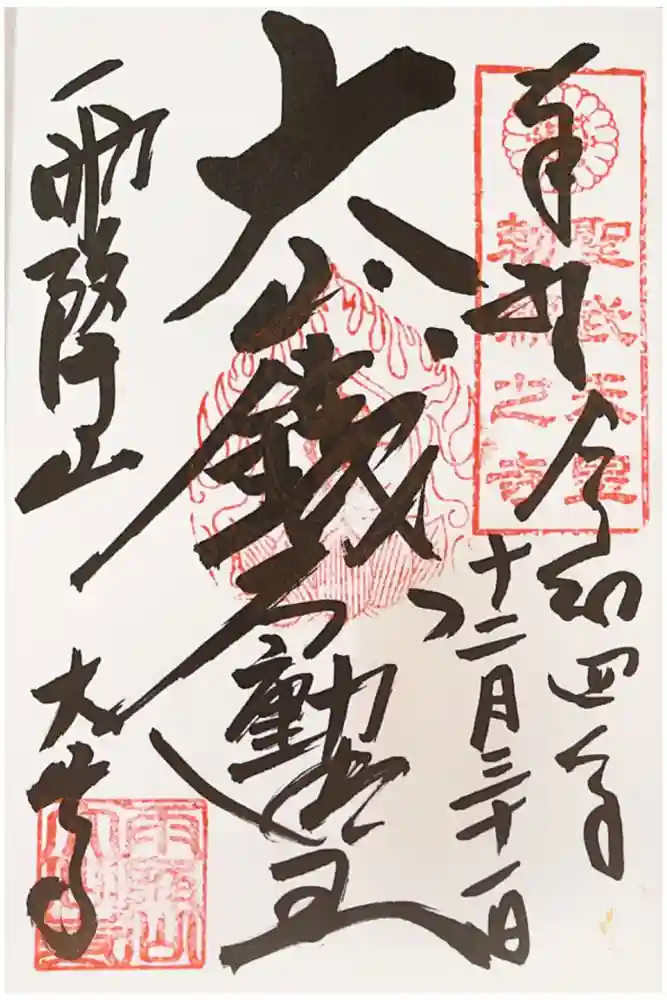 奉拝
聖武天皇
勅願之寺
令和四年
十二月三十一日
大山
鐵不動明王
雨降山
大山寺